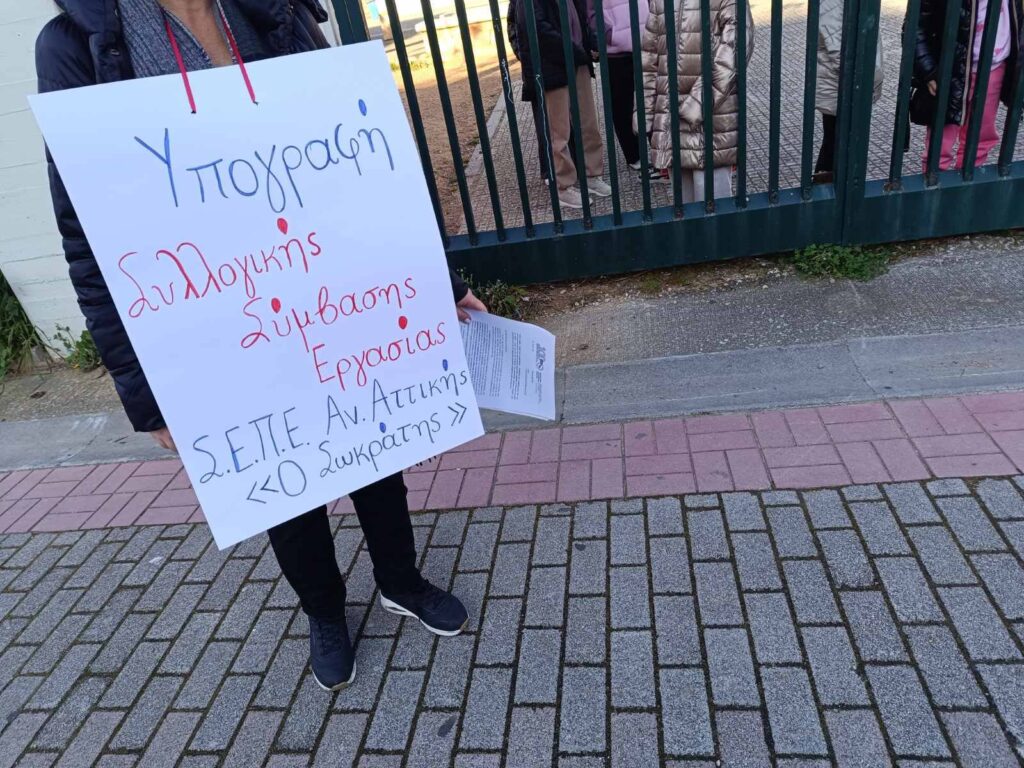 Υπογραφή
Συλλογικής
Σύμβασης
Εργασίας
Σ.Ε.Π.Ε. Αν. Αττικής
«Ο Σωκράτης»